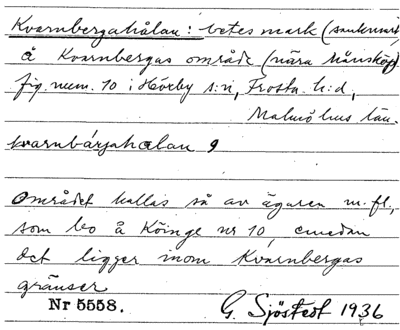 Kvarnbergahålan: betesmark (sankmark)
å Kvarnbergas område (nära
fig. num. 10 i Hörby s:n, Frosta h:d,
Malmöhus län.
kvarnbárjahalan
Området kallas så av ägaren m. fl.,
som bo å Köinge nr 10, emedan
det ligger inom Kvarnbergas
gränser
Nr 5558. G. Sjöstedt 1936